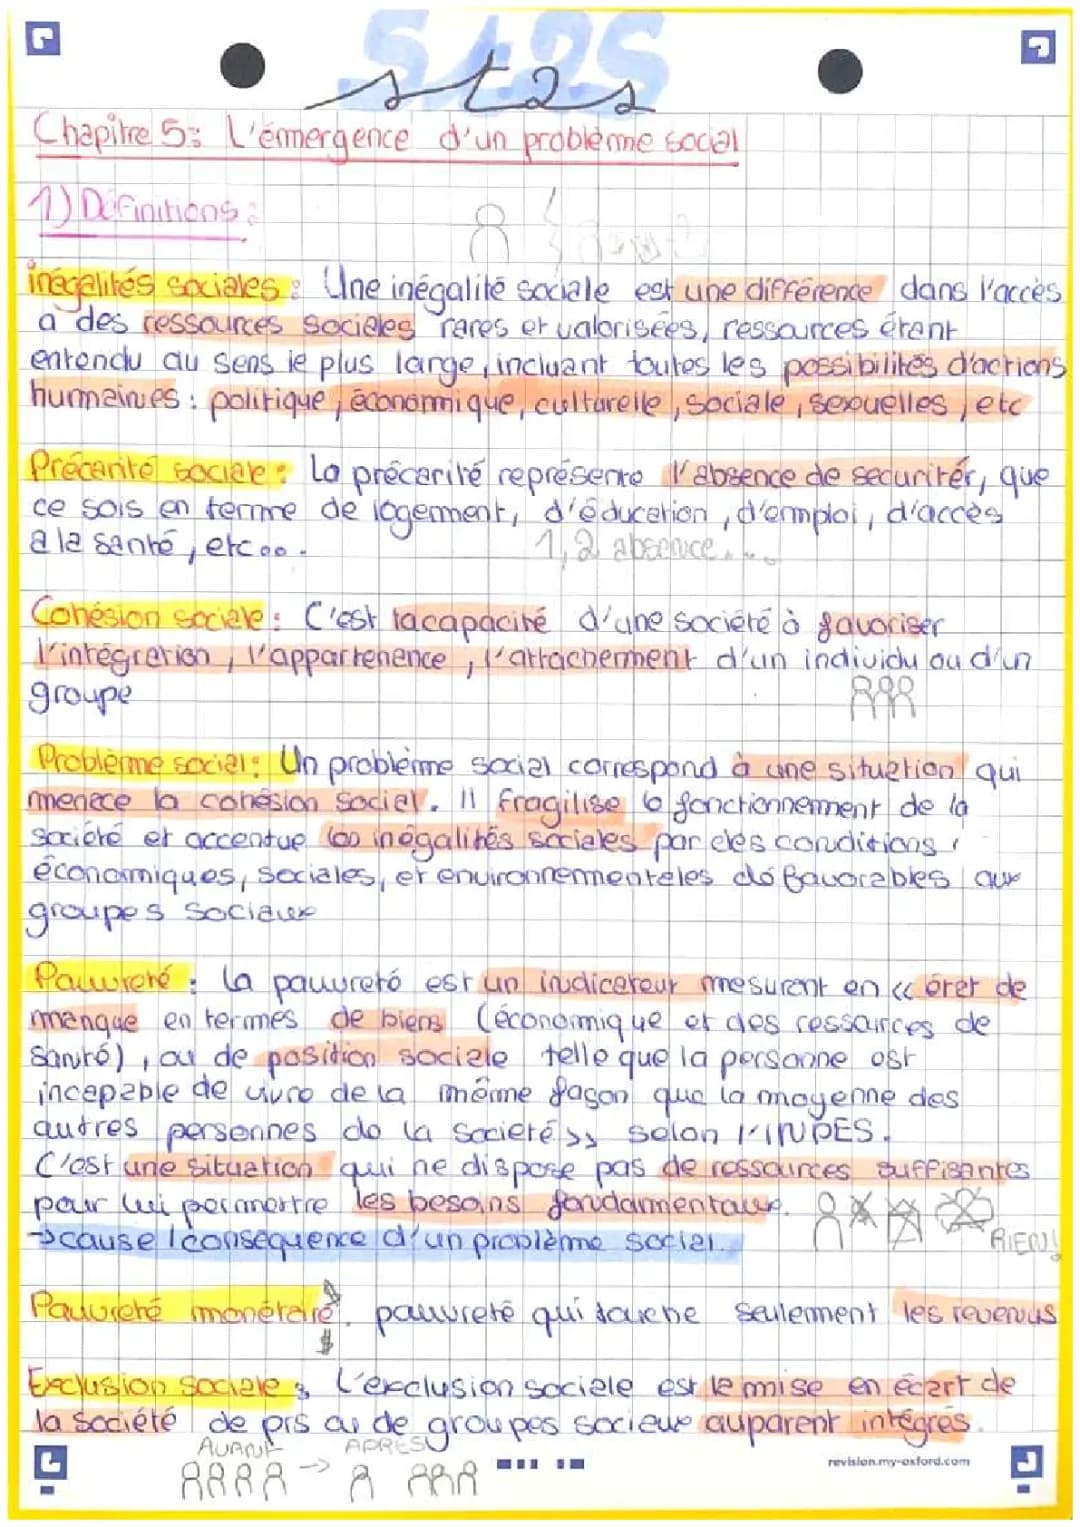 ST2S
st2s
Chapitre 5: L'émergence d'un problème social
1) Définitions :
inégalités sociales : Une inégalité sociale est une différence dans l'accès
à des ressources sociales rares et valorisées, ressources étant
entendu au sens le plus large, incluant toutes les possibilités d'actions
humaines : politique, économique, culturelle, sociale, sexuelles, etc
Précarité sociale : La précarité représente l'absence de securitér, que
ce sois en terme de logement, d'éducation, d'emploi, d'accès
a la santé, etc...
1,2 absence...
Cohésion sociale : C'est la capacité d'une société à favoriser
l'intégration, l'appartenence, l'attachement d'un individu ou d'un
groupe
Problème social : Un problème social correspond à une situation qui
menace la cohésion social. Il fragilise le fonctionnement de la
société et accentue les inégalités sociales par des conditions
économiques, sociales, et environnementales défavorables aux
groupes sociaux
Pauvreté : la pauvreté est un indicateur mesurant en << état de
manque en termes de biens (économique et des ressources de
santé), ou de position sociale telle que la personne est
incapable de vivre de la même façon que la moyenne des
autres personnes de la societé >> selon l'INPES.
C'est une situation qui ne dispose pas de ressources suffisantes
pour lui permettre les besoins fondamentaux.
RIEN!
→ cause/conséquence d'un problème social.
Pauvreté monétaire : pauvreté qui touche seulement les revenus
$
$
Exclusion sociale : L'exclusion sociale est le mise en écart de
la société de prs ou de groupes sociaux auparent intégrés.
AVANT → APRES
revision.my-oxford.com